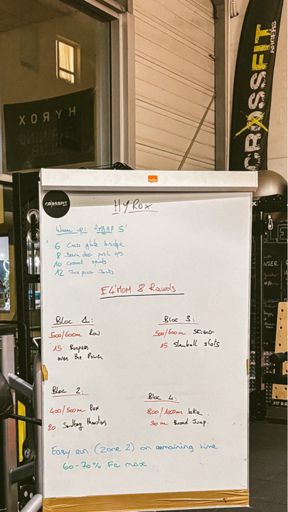 HYROX
CROSSFIT
CROSSFIT
HYROX
Warm up: AMRAP 5'
6 Cross glute bridge
8 push ups
10 squats
12 Jumping Jacks
E4'MOM 8 Rounds
Bloc 1:
500/600m Row
15 Burpees
over the Rower
Bloc 3:
500/600m SKIERG
15 Slamball
Bloc 2:
400/500m Run
20 Thrusters
Bloc 4:
800/1000m bike
30m Broad Jump
Easy run (Zone 2) on remaining time
60-70% Fc max